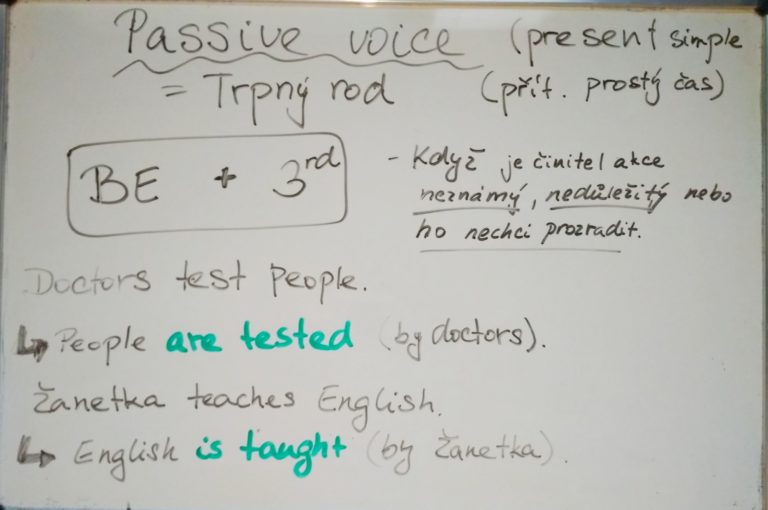 Passive voice (present simple
= Trpný rod (přít. prostý čas)
BE + 3rd
- Když je činitel akce
neznámý, nedůležitý nebo
ho nechci prozradit.
Doctors test people.
↳ People are tested (by doctors).
Žanetka teaches English.
↳ English is taught (by Žanetka).